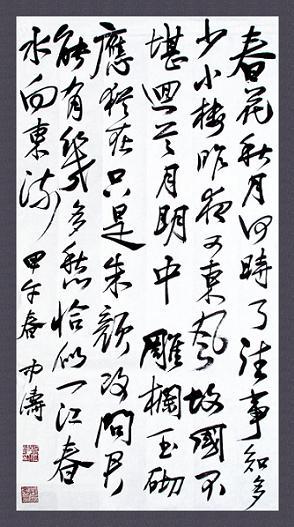 春花秋月何時了往事知多
少小樓昨夜又東風故國不
堪迴首月明中 雕欄玉砌
應猶在只是朱顏改問君
能有幾多愁恰似一江春
水向東流 甲午春 濤